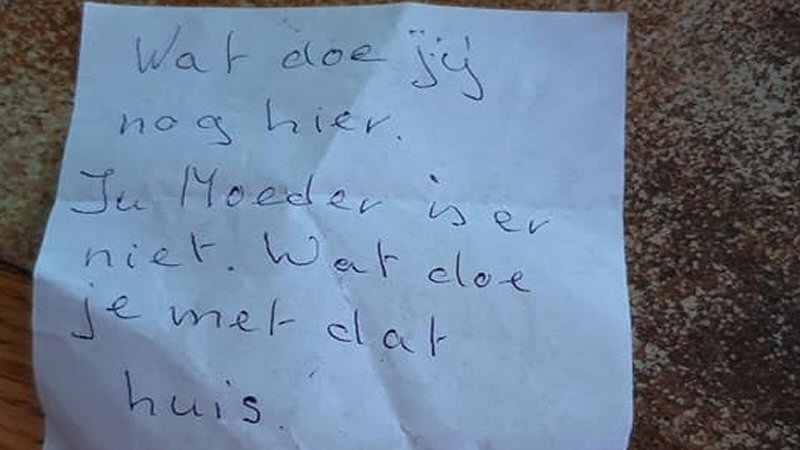 Wat doe jij
nog hier.
Ju Moeder is er
niet. Wat doe
je met dat
huis.